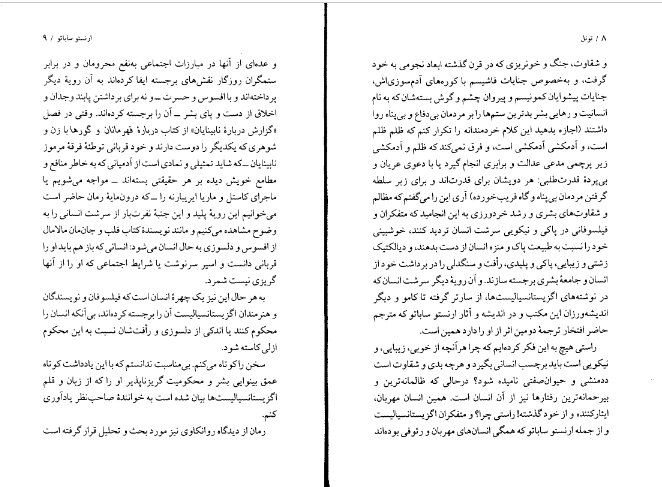 ۸ / تونل
و شقاوت، جنگ و خونریزی که در قرن گذشته ابعاد نجومی به خود
گرفت، و به‌خصوص جنایات فاشیسم با کوره‌های آدم‌سوزی‌اش،
جنایات پیشوایان کمونیسم و پیروان چشم و گوش بسته‌شان که به نام
انسانیت و رهایی بشر بدترین ستم‌ها را بر مردمان بی‌دفاع و بی‌پناه روا
داشتند (اجازه بدهید این کلام خردمندانه را تکرار کنم که ظلم ظلم
است، و آدمکشی آدمکشی است، و فرق نمی‌کند که ظلم و آدمکشی
زیر پرچمی مدعی عدالت و برابری انجام گیرد یا با دعوی عریان و
بی‌پردهٔ قدرت‌طلبی: هر دوشان برای قدرت‌اند و برای زیر سلطه
گرفتن مردمان بی‌پناه و گاه فریب‌خورده) آری این را می‌گفتم که مظالم
و شقاوت‌های بشری و رشد خردورزی به این انجامید که متفکران و
فیلسوفانی در پاکی و نیکویی سرشت انسان تردید کنند، خوشبینی
خود را نسبت به طبیعت پاک و منزه انسان از دست بدهند، و دیالکتیک
زشتی و زیبایی، پاکی و پلیدی، رأفت و سنگدلی را در برداشت خود از
انسان و جامعهٔ بشری برجسته سازند. و آن رویهٔ دیگر سرشت انسان که
در نوشته‌های اگزیستانسیالیست‌ها، از سارتر گرفته تا کامو و دیگر
اندیشه‌ورزان این مکتب و در اندیشه و آثار ارنستو ساباتو که مترجم
حاضر افتخار ترجمهٔ دومین اثر از او را دارد همین است.
راستی هیچ به این فکر کرده‌ایم که چرا هرآنچه از خوبی، زیبایی، و
نیکویی است باید برچسب انسانی بگیرد و هرچه بدی و شقاوت است
ددمنشی و حیوان‌صفتی نامیده شود؟ درحالی که ظالمانه‌ترین و
بیرحمانه‌ترین رفتارها نیز از آن انسان است. همین انسان مهربان،
ایثارکننده و از خود گذشته! راستی چرا؟ و متفکران اگزیستانسیالیست
و از جمله ارنستو ساباتو که همگی انسان‌های مهربان و رئوفی بوده‌اند
ارنستو ساباتو / ۹
و عده‌ای از آنها در مبارزات اجتماعی به‌نفع محرومان و در برابر
ستمگران روزگار نقش‌های برجسته ایفا کرده‌اند به آن رویهٔ دیگر
پرداخته‌اند و با افسوس و حسرت ــ و نه برای برداشتن پابند وجدان و
اخلاق از دست و پای بشر ــ آن را برجسته کرده‌اند. وقتی در فصل
«گزارش دربارهٔ نابینایان» از کتاب دربارهٔ قهرمانان و گورها با زن و
شوهری که یکدیگر را دوست دارند و خود قربانی توطئهٔ فرقهٔ مرموز
نابینایان ــ که شاید تمثیلی و نمادی است از آدمیانی که به خاطر منافع و
مطامع خویش دیده بر هر حقیقتی بسته‌اند ــ مواجه می‌شویم یا
ماجرای کاستل و ماریا ایریبارنه را ــ که درون‌مایهٔ رمان حاضر است
می‌خوانیم این رویهٔ پلید و این جنبهٔ نفرت‌بار از سرشت انسانی را به
وضوح مشاهده می‌کنیم و مانند نویسندهٔ کتاب قلب و جان‌مان مالامال
از افسوس و دلسوزی به حال انسان می‌شود: انسانی که باز هم باید او را
قربانی دانست و اسیر سرنوشت یا شرایط اجتماعی که او را از آنها
گریزی نیست شمرد.
به هر حال این نیز یک چهرهٔ انسان است که فیلسوفان و نویسندگان
و هنرمندان اگزیستانسیالیست آن را برجسته کرده‌اند، بی‌آنکه انسان را
محکوم کنند یا اندکی از دلسوزی و رأفت‌شان نسبت به این محکوم
ازلی کاسته شود.
سخن را کوتاه می‌کنم. بی‌مناسبت ندانستم که با این یادداشت کوتاه
عمق بینوایی بشر و محکومیت گریزناپذیر او را که از زبان و قلم
اگزیستانسیالیست‌ها بیان شده است به خوانندهٔ صاحب‌نظر یادآوری
کنم.
رمان از دیدگاه روانکاوی نیز مورد بحث و تحلیل قرار گرفته است